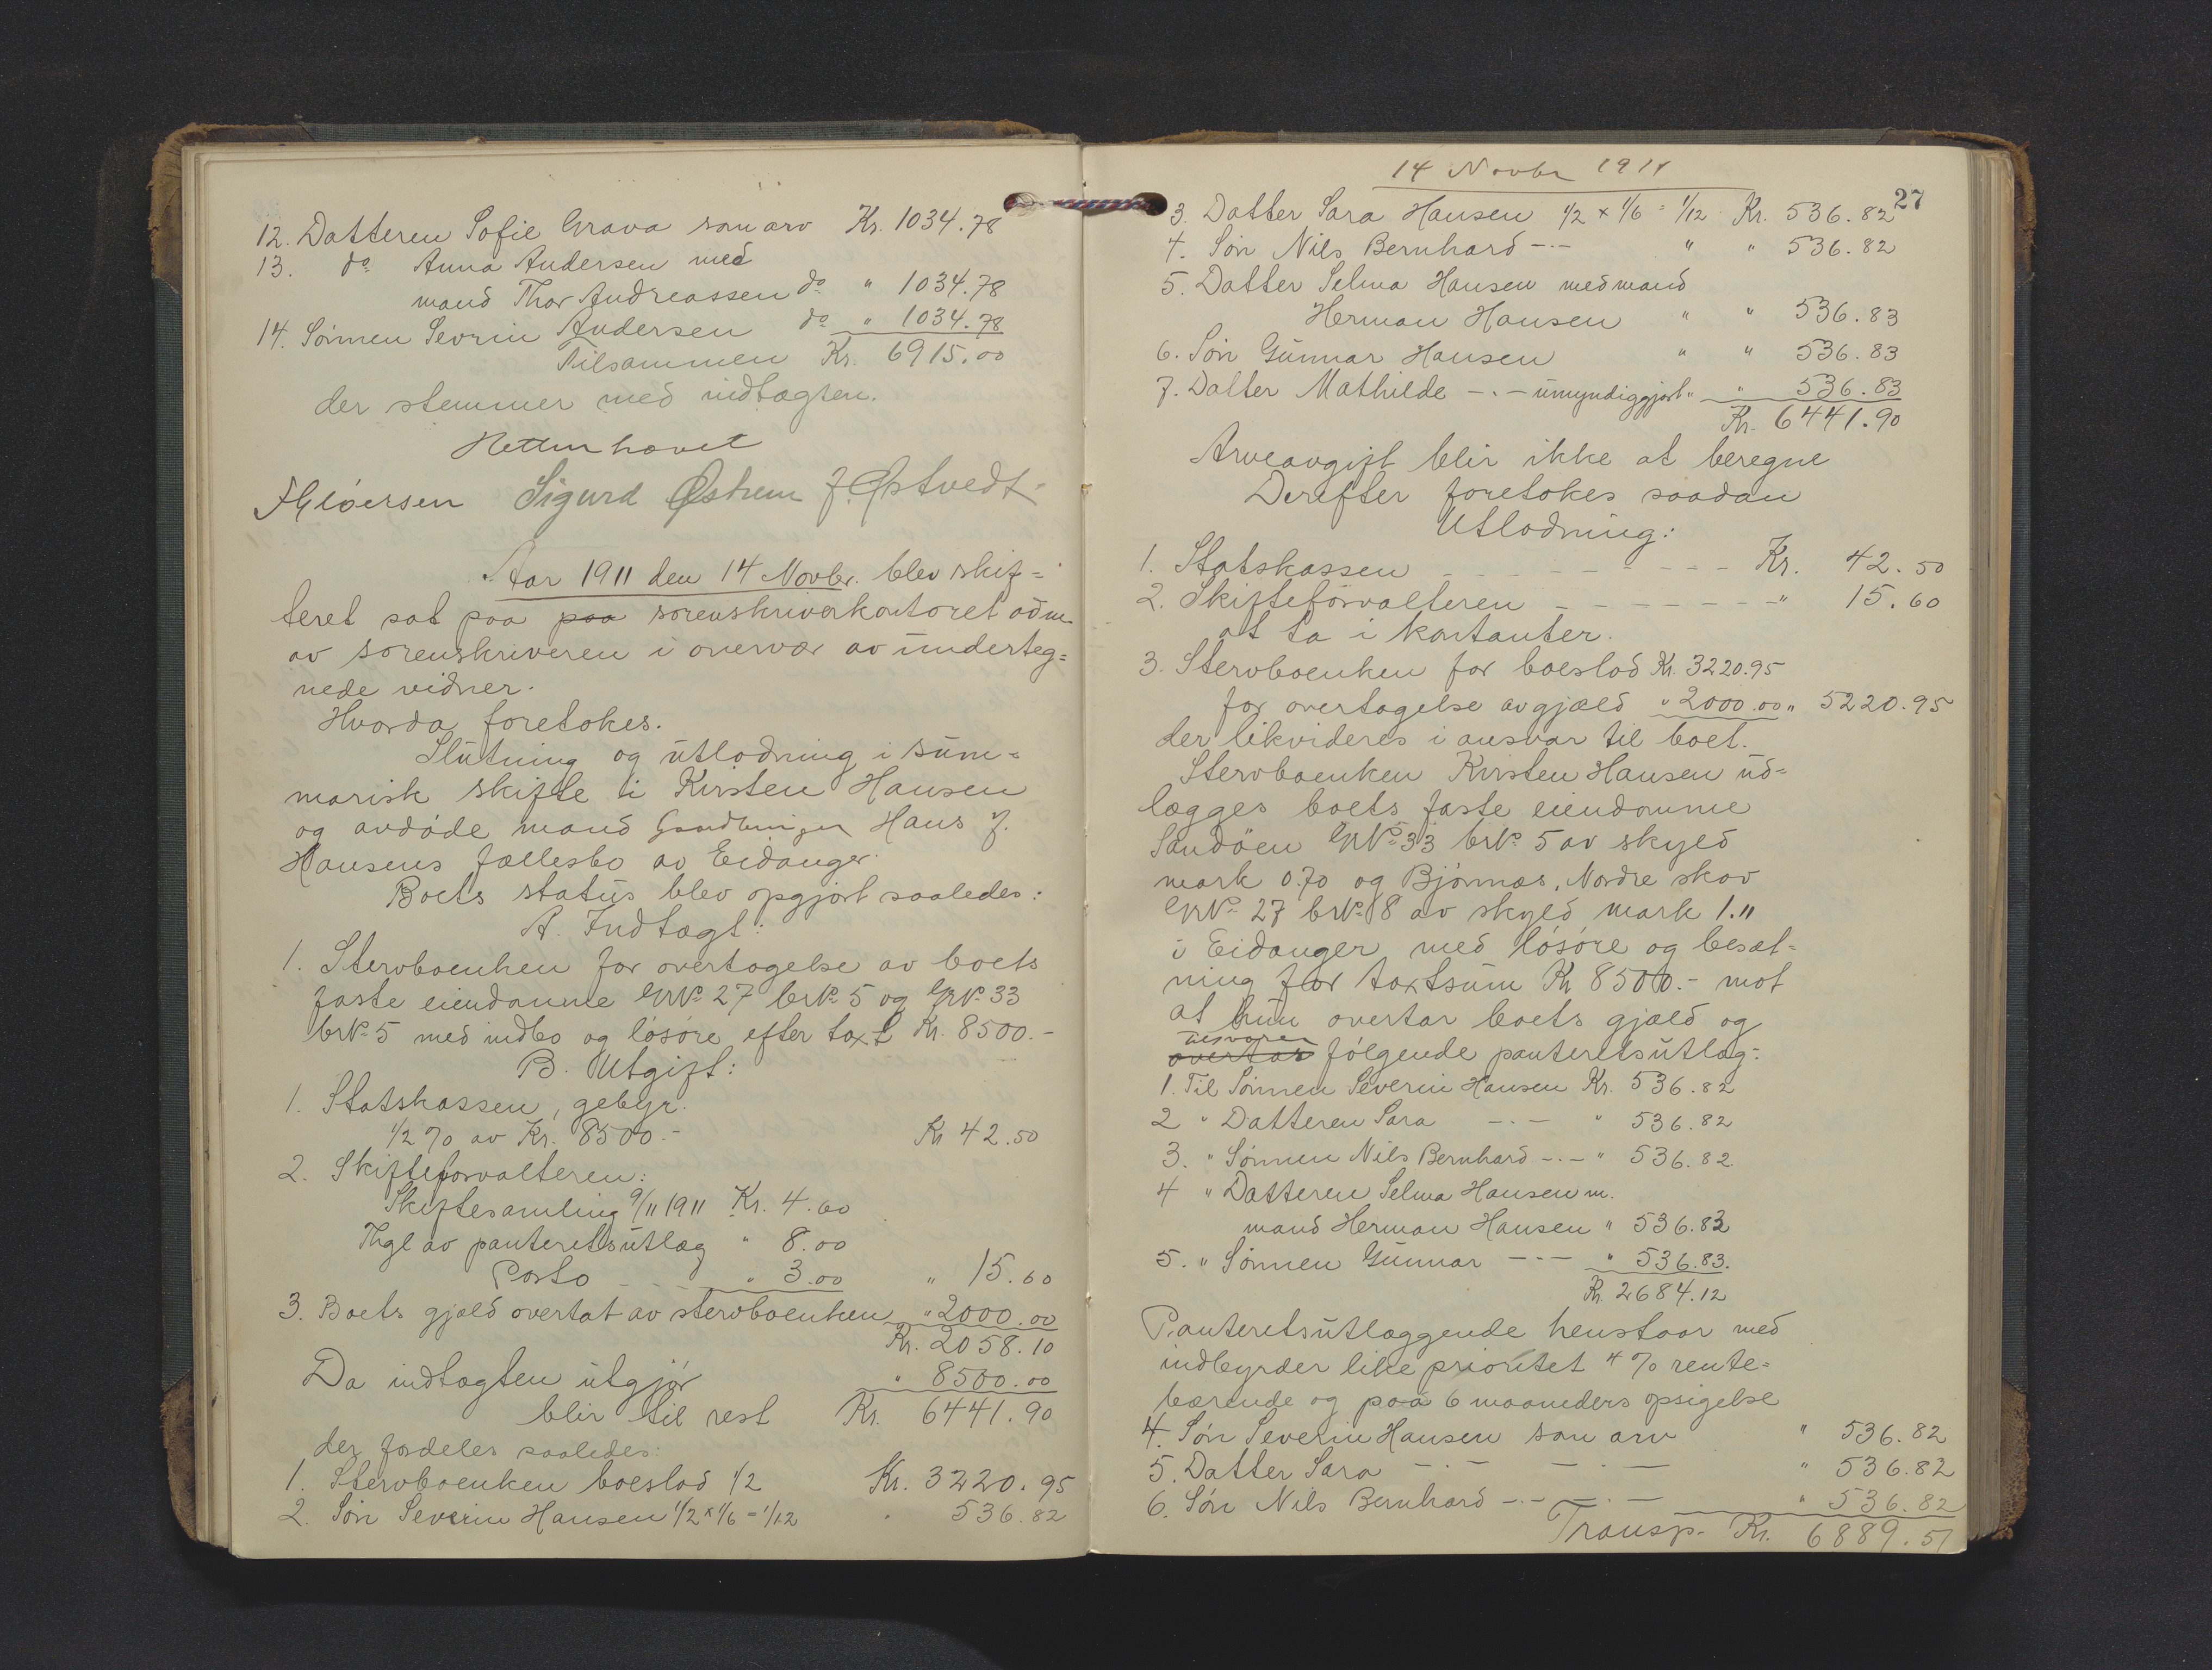 12. Datteren Sofie Grava som arv Kr. 1034.78
13. do Anna Andersen med
mand Thor Andreassen do " 1034.78
14. Sönnen Sevrin Andersen do " 1034.78
Tilsammen Kr. 6915.00
der stemmer med indtægten.
Retten hævet
Sigurd Østrem J. Østvedt
Aar 1911 den 14 Novbr. blev skif=
teret sat paa paa sorenskriverkontoret adm.
av sorenskriveren i overvær av underteg=
nede vidner.
Hvorda foretokes.
Slutning og utlodning i sum=
marisk skifte i Kirsten Hansen
og avdöde mand Hans J.
Hansens fællesbo av Eidanger.
Boets status blev opgjort saaledes:
A. Indtægt:
1. Stervboenken for overtagelse av boets
faste eiendomme GrNo 27 brNo 5 og GrNo 33
brNo 5 med indbo og lösöre efter taxt Kr. 8500.-
B. Utgift:
1. Statskassen, gebyr.
1/2 % av Kr. 8500.- Kr 42.50
2. Skifteforvalteren:
Skiftesamling 9/11 1911 Kr. 4.60
Thgl av panteretsutlæg " 8.00
Porto - - - " 3.00 " 15.60
3. Boets gjæld overtat av stervboenken " 2000.00
Kr. 2058.10
Da indtægten utgjör " 8500.00
blir til rest Kr. 6441.90
der fordeles saaledes:
1. Stervboenken boeslod 1/2 Kr. 3220.95
2. Sön Severin Hansen 1/2 x 1/6 = 1/12 " 536.82
14 Novbr 1911
27
3. Datter Sara Hansen 1/2 x 1/6 = 1/12 Kr. 536.82
4. Sön Nils Bernhard -.- " " 536.82
5. Datter Selma Hansen med mand
Herman Hansen " " 536.83
6. Sön Gunnar Hansen " " 536.83
7. Datter Mathilde -.- umyndiggjort " " 536.83
Kr. 6441.90
Arveavgift blir ikke at beregne
Derefter foretokes saadan
Utlodning:
1. Statskassen - - - - - - - - - Kr. 42.50
2. Skifteforvalteren - - - - - - - " 15.60
at ta i kontanter.
3. Stervboenken for boeslod Kr. 3220.95
for overtagelse av gjæld " 2000.00 " 5220.95
der likvideres i ansvar til boet.
Stervboenken Kirsten Hansen ud=
lægges boets faste eiendomme
Sandöen GrNo 33 brNo 5 av skyld
mark 0.70 og Bjönnæs, Nordre skov
GrNo 27 brNo 8 av skyld mark 1.11
i Eidanger med lösöre og besæt=
ning for taxtsum Kr 8500.- mot
at hun overtar boets gjæld og
utsvarer
overtar fölgende panteretsutlæg:
1. Til Sönnen Severin Hansen Kr. 536.82
2 " Datteren Sara -.- " 536.82
3. " Sönnen Nils Bernhard -.- " 536.82
4 " Datteren Selma Hansen m.
mand Herman Hansen " 536.83
5. " Sönnen Gunnar -.- " 536.83.
Kr. 2684.12
Panteretsutlæggende henstaar med
indbyrdes like prioritet 4 % rente=
bærende og paa 6 maaneders opsigelse
4. Sön Severin Hansen som arv " 536.82
5. Datter Sara -.- -.- " 536.82
6. Sön Nils Bernhard -.- -.- " 536.82
Transp. Kr. 6889.51